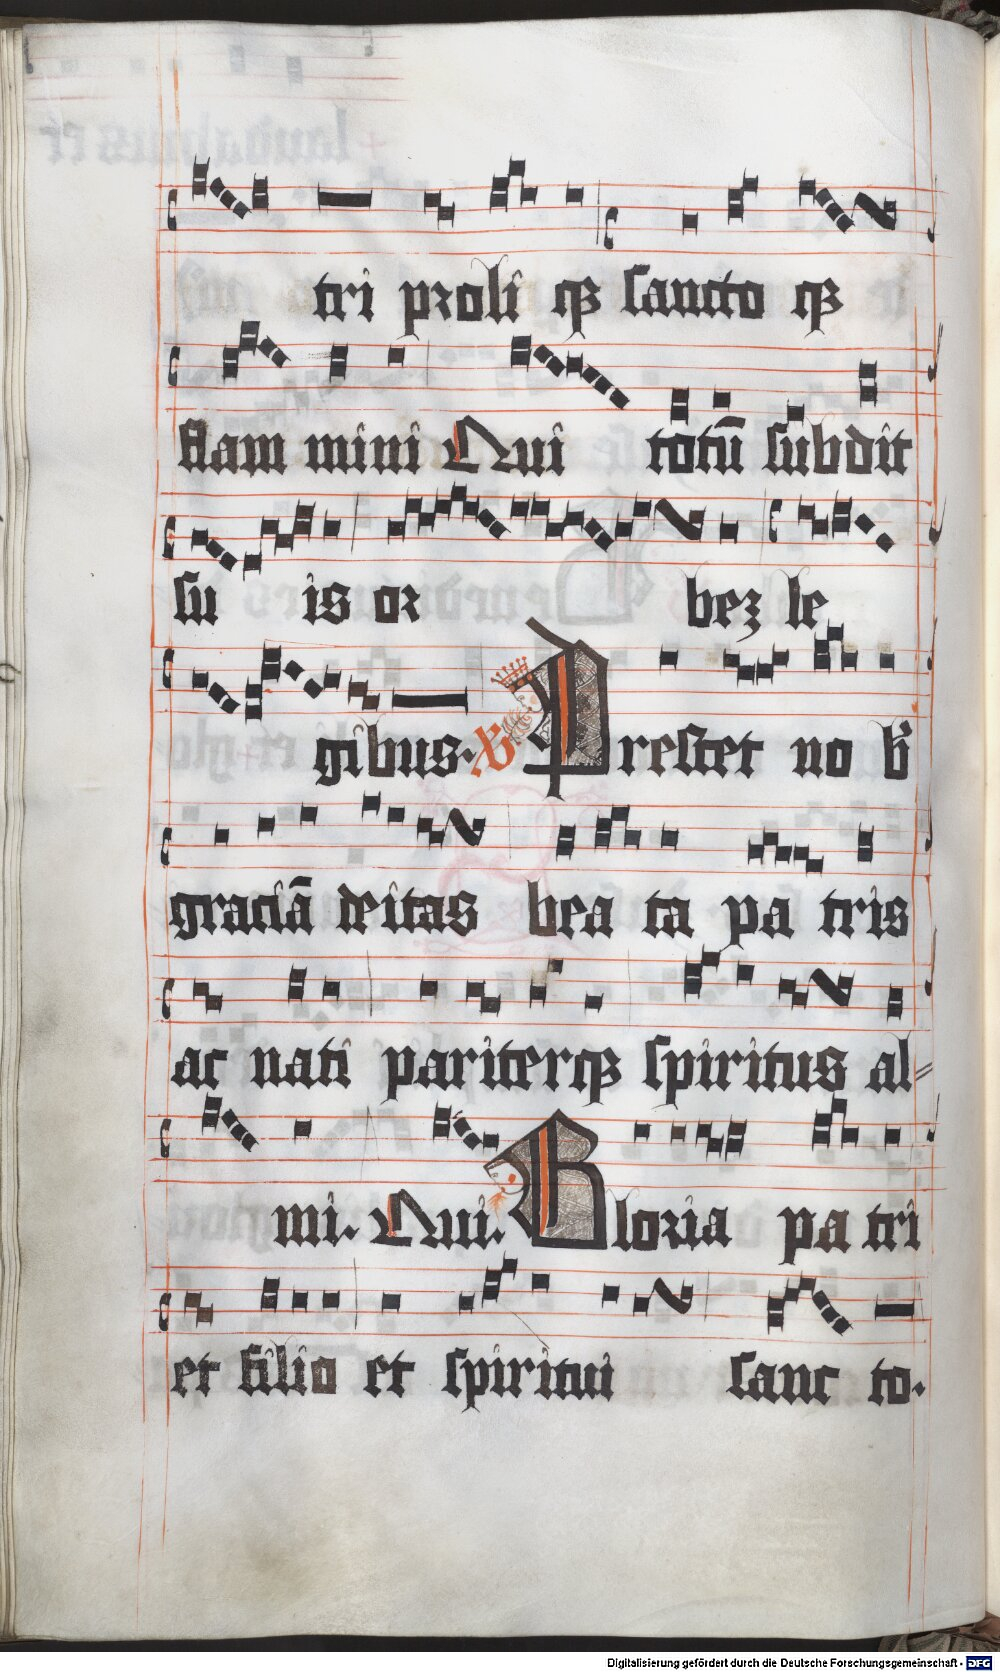 tri proli qꝫ sancto qꝫ
flam mini Qui totū subdit
su is or bez le
gibus. ℣ Prestet no b̄
graciā deitas bea ta pa tris
ac nati pariterqꝫ spiritus al⸗
mi. Qui. Gloria pa tri
et filio et spiritui sanc to.
Digitalisierung gefördert durch die Deutsche Forschungsgemeinschaft - DFG